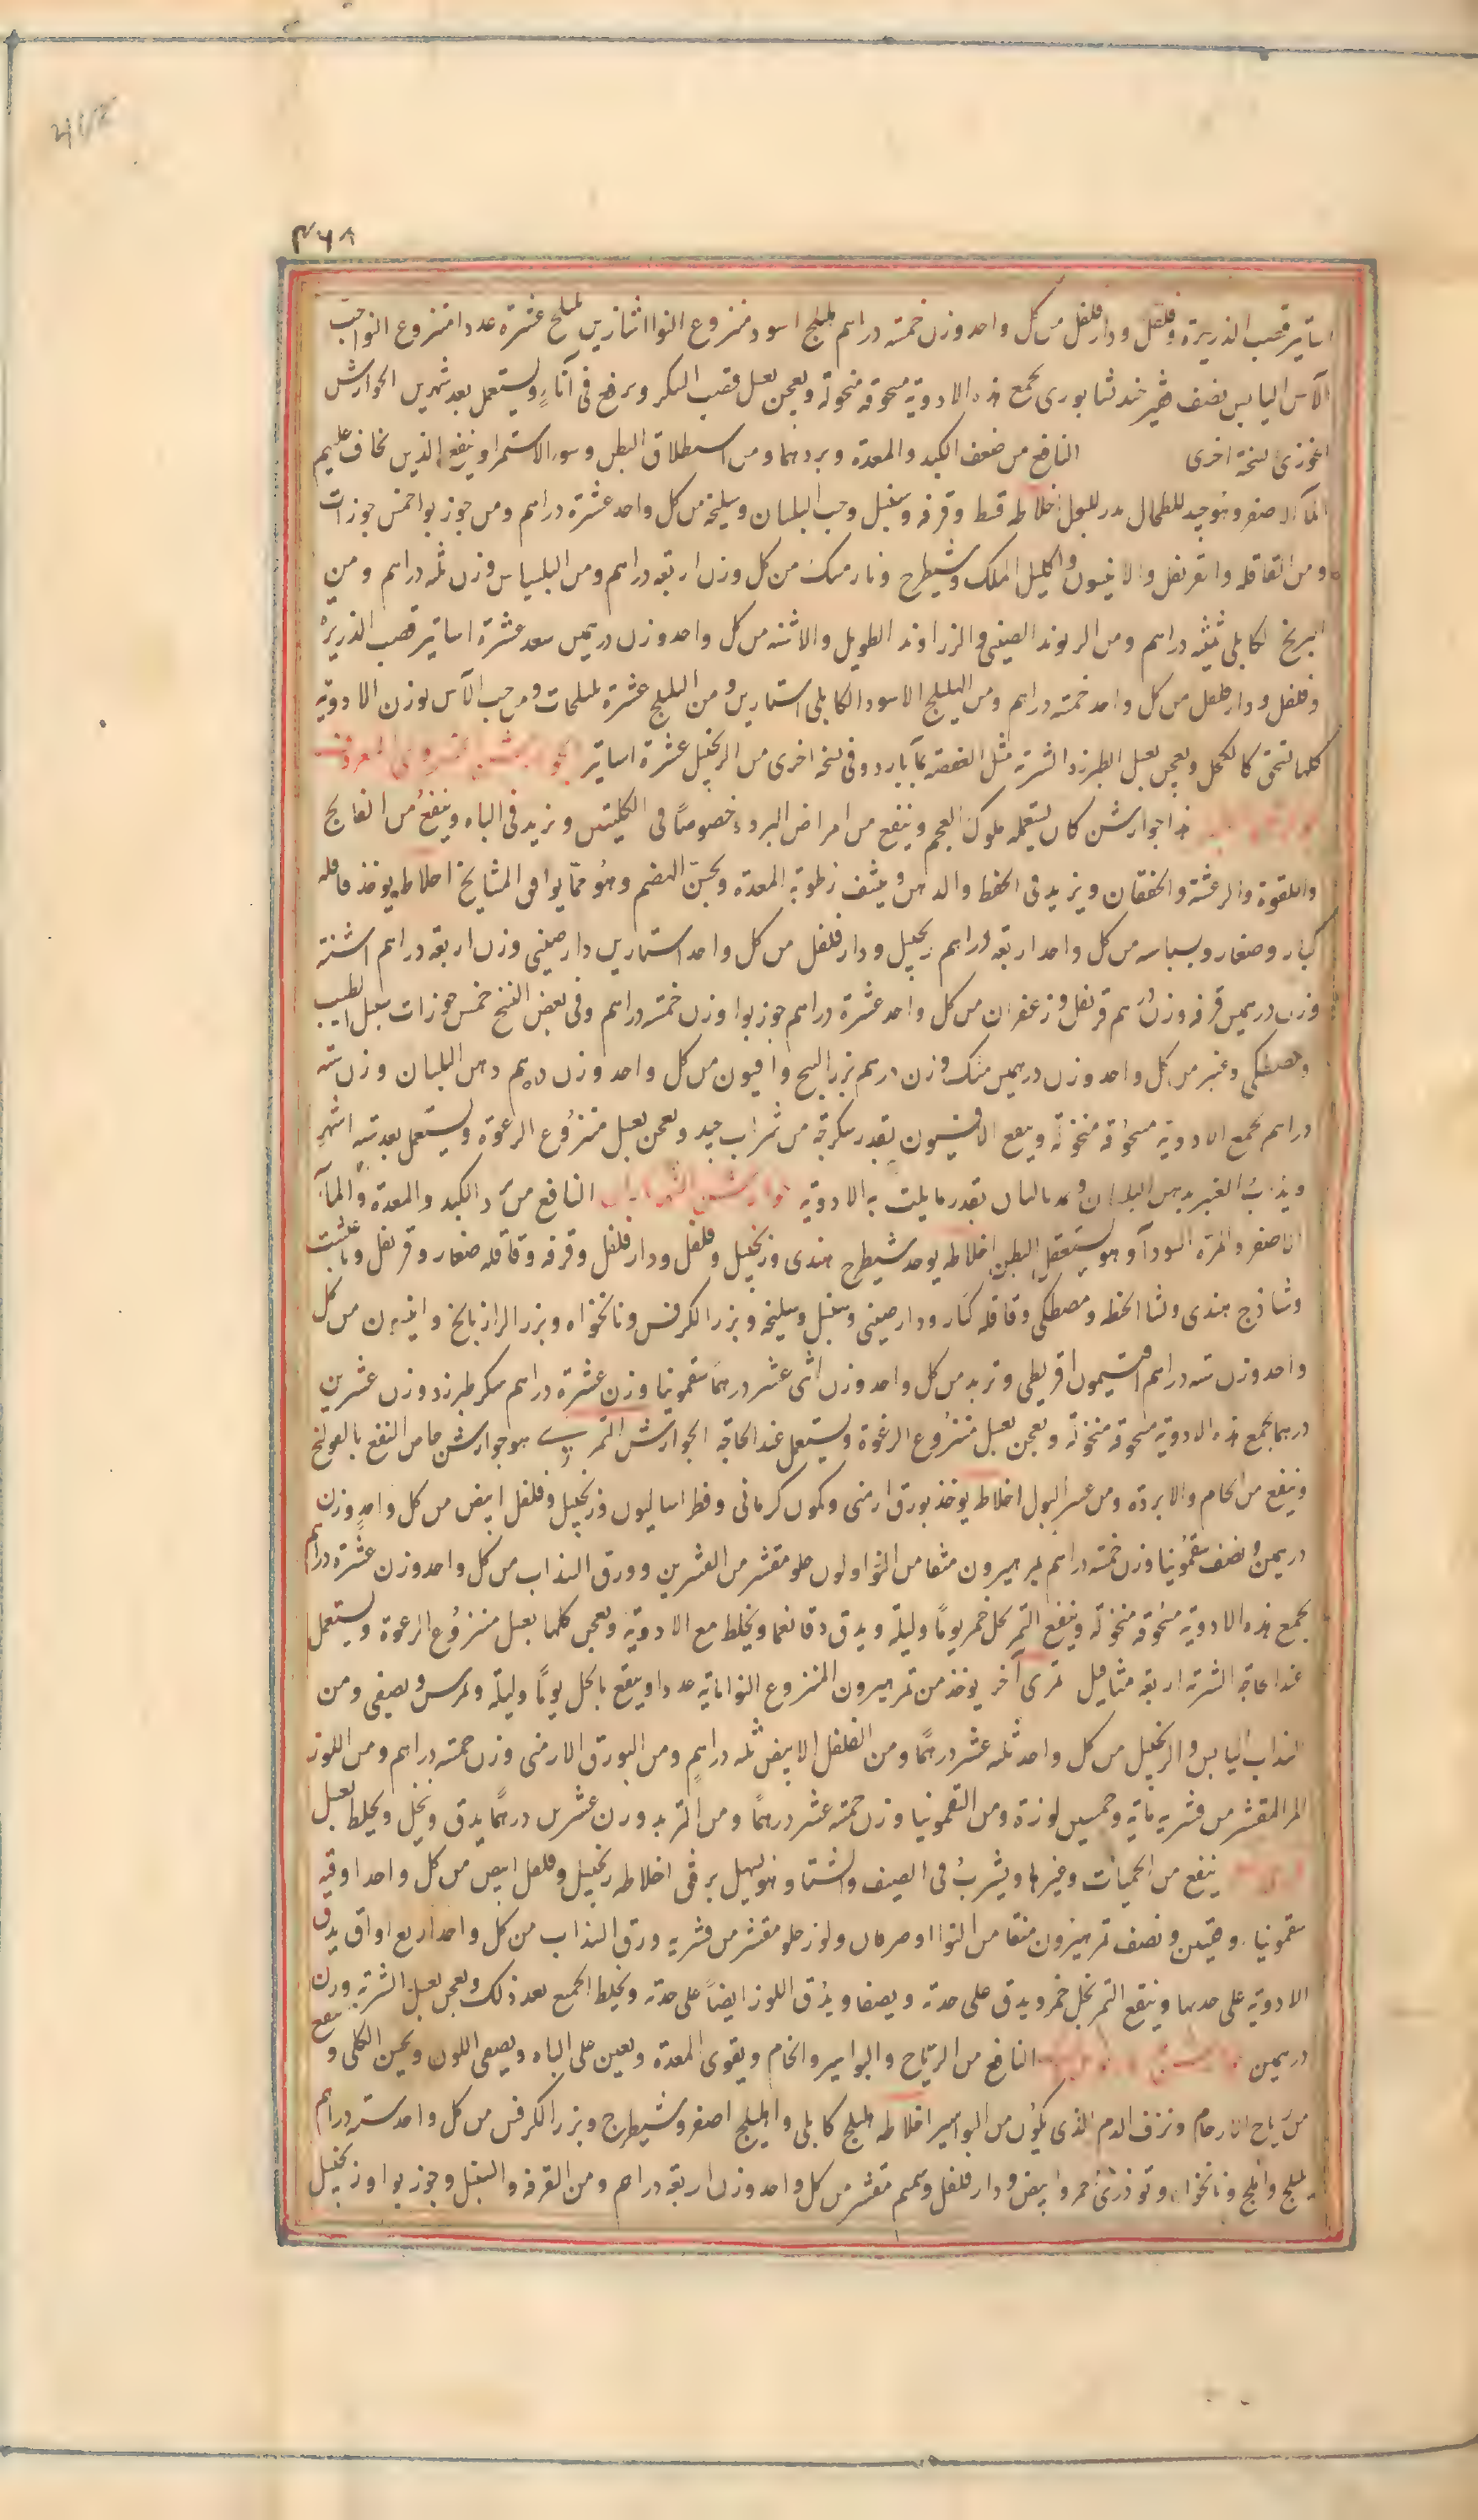 ۴۶۸
اساتير قصب الذريرة وفلفل ودار فلفل من كل واحد وزن خمسة دراهم هليلج اسود منزوع النوا استارين بليلج عشرة عددا منزوع النوا حب
الآس اليابس نصف قفيز جند يسابورى يجمع هذه الادوية مسحوقة منخولة ويعجن بعسل قصب السكر ويرفع فى اناء ويستعمل بعد شهرين الجوارش
الخوزى نسخة اخرى النافع من ضعف الكبد والمعدة وبردهما ومن استطلاق البطن وسوء الاستمرا وينفع الذين يخاف عليهم
الماء الاصفر وهو جيد للطحال مدر للبول اخلاطه قسط وقرفه وسنبل وحب البلسان وسليخة من كل واحد عشرة دراهم ومن جوز بوا خمس جوزات
ومن القاقله والقرنفل والاكليل الملك وشيطرج ونارمشك من كل وزن اربعة دراهم ومن وزن ثلثه دراهم ومن
ابرنج الكابلى ثلثة دراهم ومن الريوند الصينى والزراوند الطويل والاشنه من كل واحد وزن درهمين سعد عشرة اساتير قصب الذريرة
وفلفل ودار فلفل من كل واحد خمسة دراهم ومن الهليلج الاسود الكابلى استارين ومن البليلج عشرة بليلجات ومن حب الآس بوزن الادوية
كلها تسحق كالكحل ويعجن بعسل الطبرزد الشربة مثل العفصة بماء بارد وفى نسخة اخرى من الزنجبيل عشرة اساتير المعروف
هذا جوارشن كان يستعمله ملوك العجم وينفع من امراض البرودة خصوصًا فى الكليتين ويزيد فى الباه وينفع من الفالج
واللقوة والرعشة والخفقان ويزيد فى الحفظ والذهن وينشف رطوبة المعدة ويحسن الهضم وهو مما يوافق المشايخ اخلاطه يوخذ قاقله
كبار وصغار وبسباسه من كل واحد اربعة دراهم زنجبيل ودار فلفل من كل واحد استارين دارصينى وزن اربعة دراهم اشنة
وزن درهمين قرفه وزن درهم قرنفل وزعفران من كل واحد عشرة دراهم جوز بوا وزن خمسة دراهم وفى بعض النسخ خمس جوزات سنبل الطيب
ومصطكى وعنبر من كل واحد وزن درهمين مسك وزن درهم بزر البنج وافيون من كل واحد وزن درهم دهن البلسان وزن ستة
دراهم تجمع الادوية مسحوقة منخولة وينقع الافيون بقدر سكرجة من شراب جيد ويعجن بعسل منزوع الرغوة ويستعمل بعد ستة اشهر
ويذاب العنبر بدهن البلسان بقدر ما يلت به الادوية النافع من برد الكبد والمعدة والماء
الاصفر والمرة السودآء وهو يستعقل البطن اخلاطه يوخذ شيطرج هندى وزنجبيل وفلفل ودار فلفل وقرفه وقاقله صغار وقرنفل
وشاذج هندى ونشا الحنطه ومصطكى وقاقله كبار ودارصينى وسنبل وسليخة وبزر الكرفس ونانخواه وبزر الرازيانج وانيسون من كل
واحد وزن ستة دراهم افتيمون اقريطى وتربد من كل واحد وزن اثنى عشر درهما سقمونيا وزن عشرة دراهم سكر طبرزد وزن عشرين
درهما يجمع هذه الادوية مسحوقة منخولة ويعجن بعسل منزوع الرغوة ويستعمل عند الحاجة الجوارشن التمرى هو جوارشن خاص النفع بالقولنج
وينفع من الخام والابردة ومن عسر البول اخلاطه يوخذ بورق ارمنى وكمون كرمانى وفطراساليون وزنجبيل وفلفل ابيض من كل واحد وزن
درهمين ونصف سقمونيا وزن خمسة دراهم تمر هيرون منقا من النوا ولوز حلو مقشر من القشرين وورق السذاب من كل واحد وزن عشرة دراهم
يجمع هذه الادوية مسحوقة منخولة وينقع التمر بخل خمر يومًا وليلة ويدق دقا ناعما ويخلط مع الادوية ويعجن كلها بعسل منزوع الرغوة ويستعمل
عند الحاجة الشربة اربعة مثاقيل تمرى آخر يوخذ من تمر هيرون المنزوع النوا ماية عددا وينقع بالخل يومًا وليلة ويمرس ويصفى ومن
السذاب اليابس والزنجبيل من كل واحد ثلثه عشر درهمًا ومن الفلفل الابيض ثلثه دراهم ومن البورق الارمنى وزن خمسة دراهم ومن اللوز
المر المقشر من قشريه ماية وخمسين لوزة ومن السقمونيا وزن خمسة عشر درهمًا ومن التربد وزن عشرين درهمًا يدق وينخل ويخلط بعسل
ينفع من الحميات وغيرها ويشرب فى الصيف والشتا وهو يسهل برفق اخلاطه زنجبيل وفلفل ابيض من كل واحد اوقيه
سقمونيا وقيتين ونصف تمر هيرون منقا من النوا ولوز حلو مقشر من قشريه ورق السذاب من كل واحد اربع اواق يدق
الادوية على حدها وينقع التمر بخل خمر ويدق على حدة ويصفا ويدق اللوز ايضًا على حدة ويخلط الجميع بعد ذلك ويعجن بعسل الشربة وزن
درهمين النافع من الرياح والبواسير والخام ويقوى المعدة ويعين على الباه ويصفى اللون ويسخن الكلى وينفع
من رياح الارحام ونزف الدم الذى يكون من البواسير اخلاطه هليلج كابلى واهليلج اصفر وشيطرج وبزر الكرفس من كل واحد ستة دراهم
بليلج واملج ونانخواه وتوذرى احمر وابيض ودار فلفل وسمسم مقشر من كل واحد وزن اربعة دراهم ومن القرفه والسنبل وجوز بوا وزنجبيل